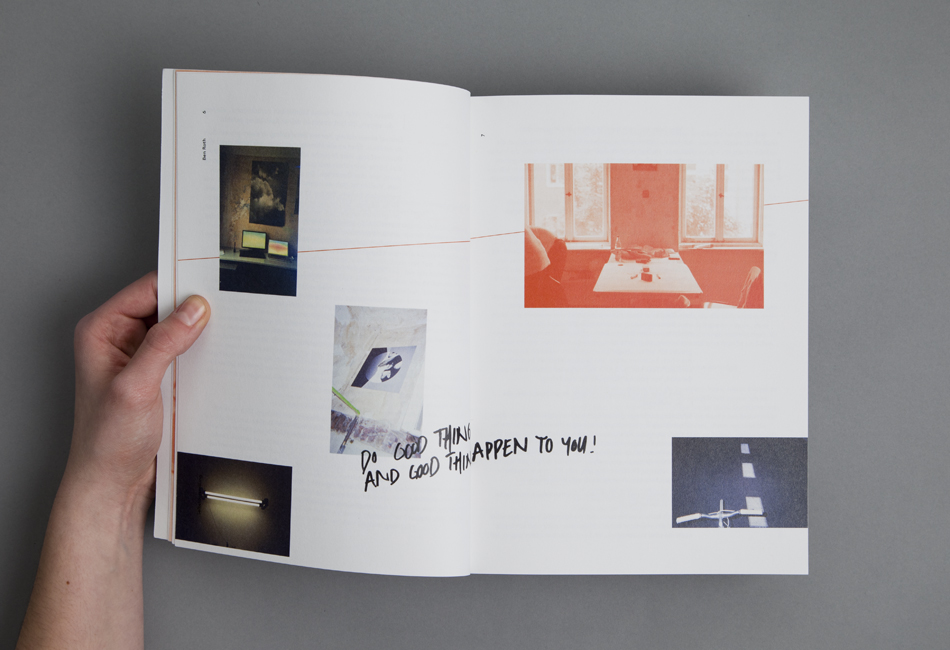 6
Ben Roth
7
DO GOOD THING
AND GOOD THIN APPEN TO YOU!